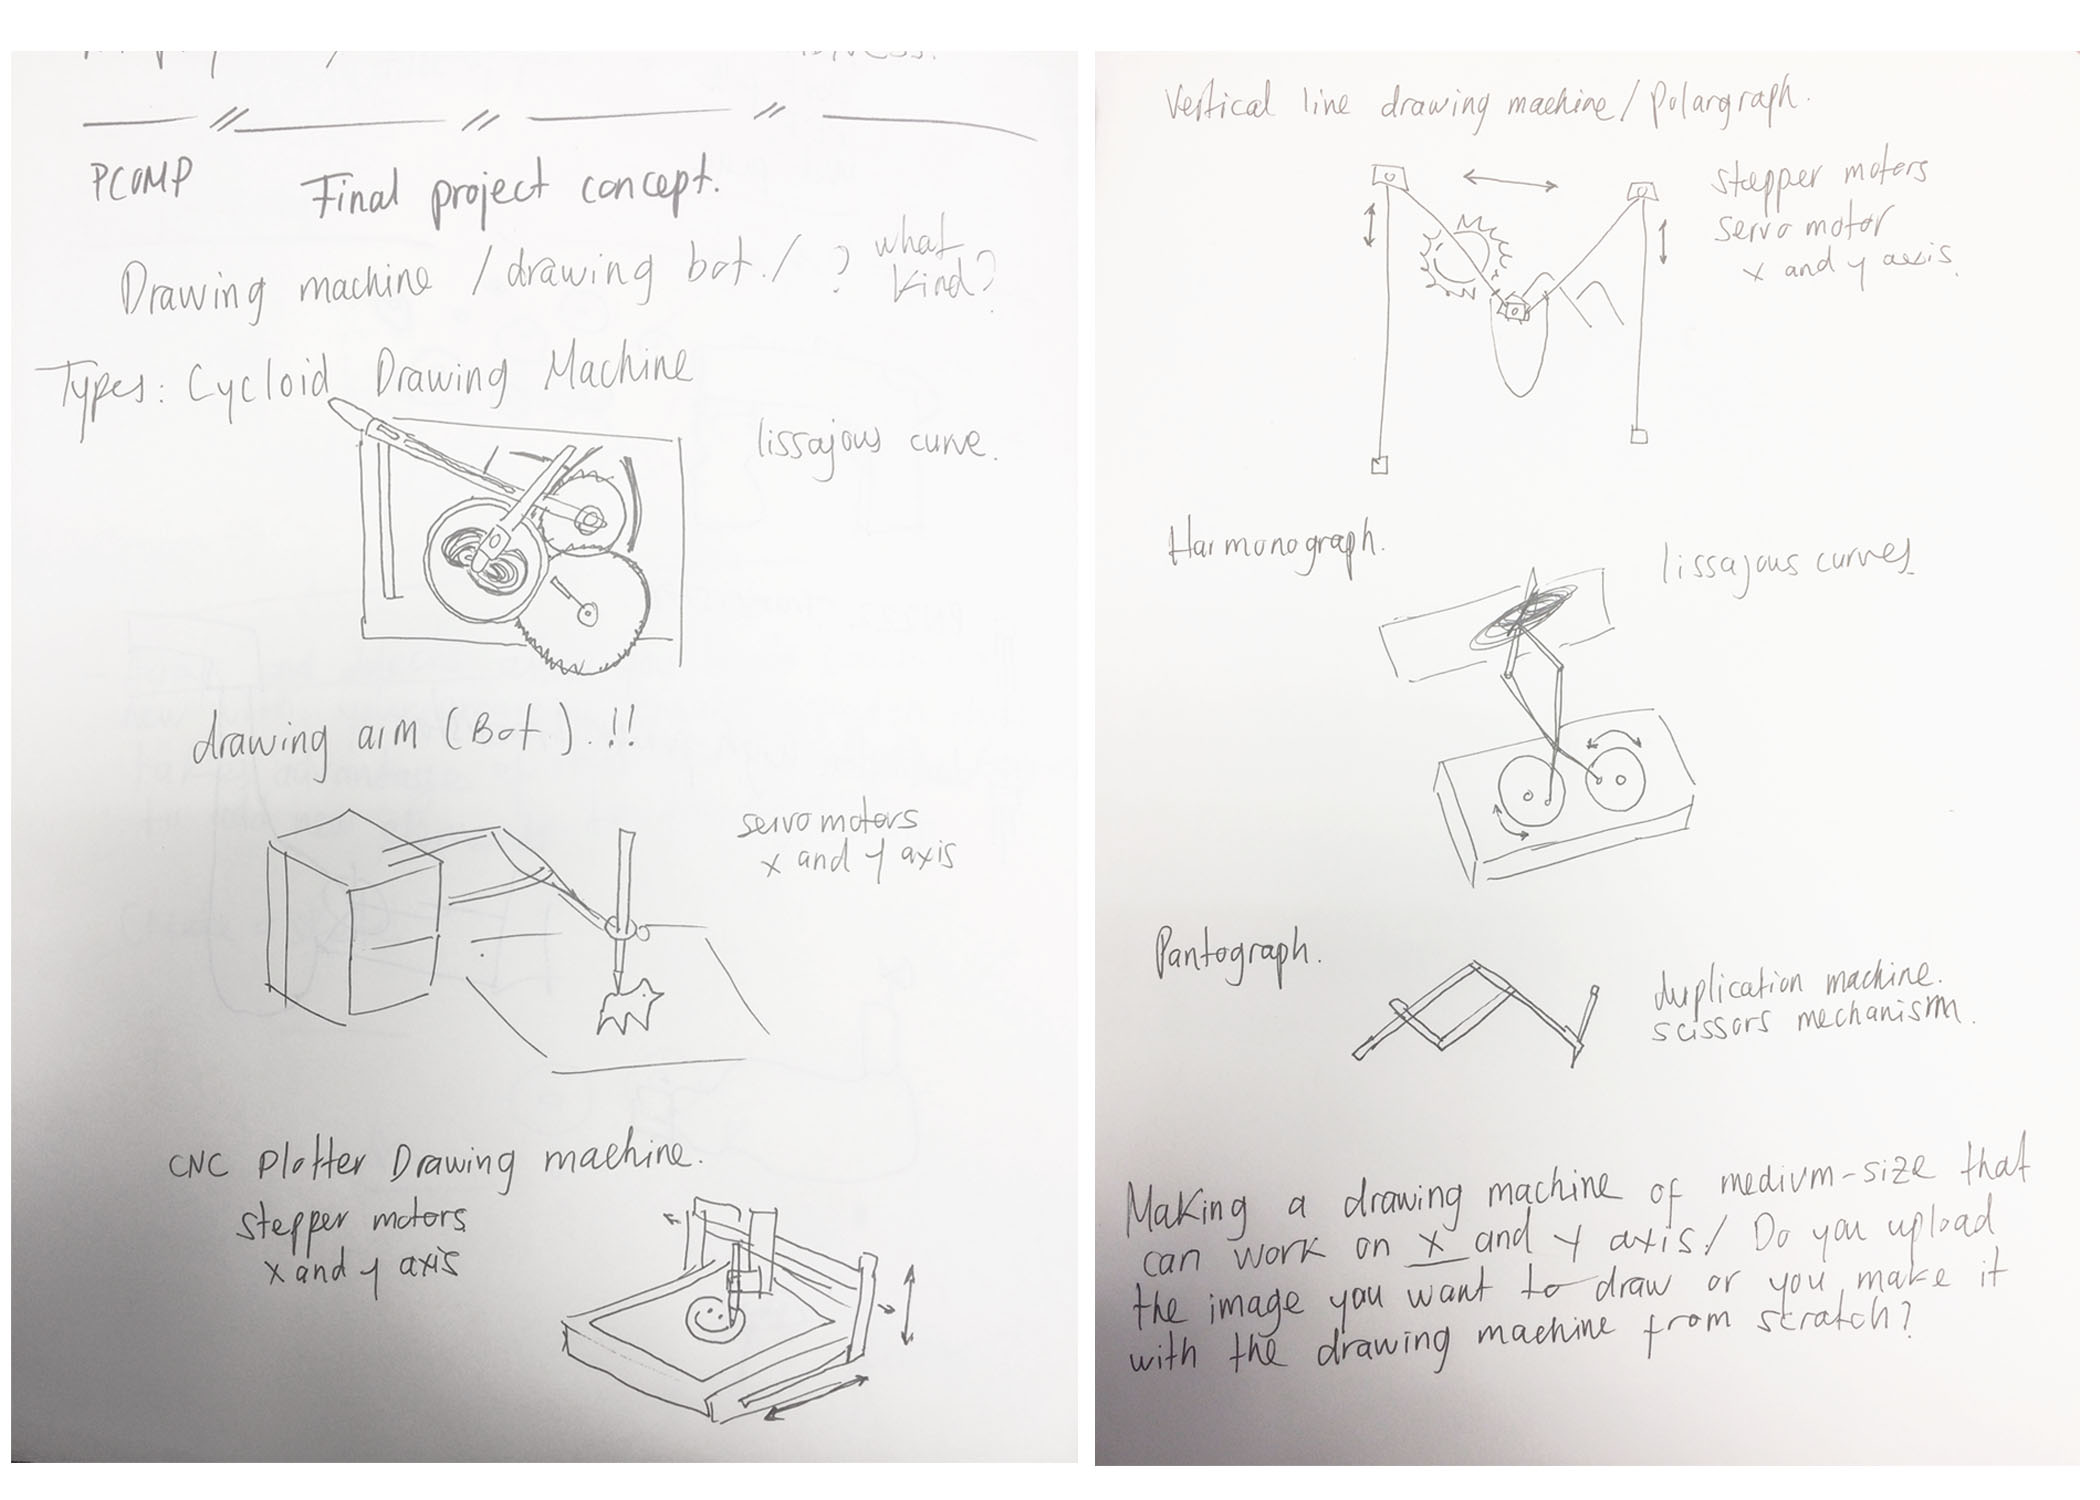 PCOMP
Final project concept.
Drawing machine / drawing bot. / ? what
kind?
Types: Cycloid Drawing Machine
lissajous curve.
drawing arm (Bot). !!
servo motors
x and y axis
CNC Plotter Drawing machine.
stepper motors
x and y axis
Vertical line drawing machine / Polargraph.
stepper moters
servo motor
x and y axis.
Harmonograph.
lissajous curves
Pantograph.
duplication machine.
scissors mechanism.
Making a drawing machine of medium-size that
can work on x and y axis! Do you upload
the image you want to draw or you make it
with the drawing machine from scratch?